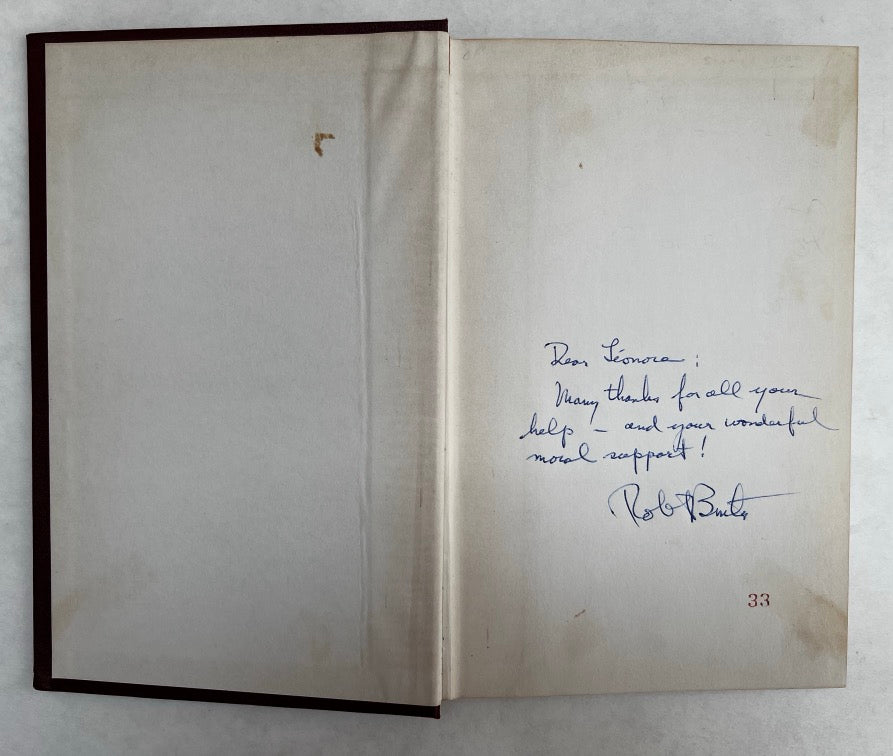 Dear Léonora :
Many thanks for all your
help – and your wonderful
moral support !
Robt
33